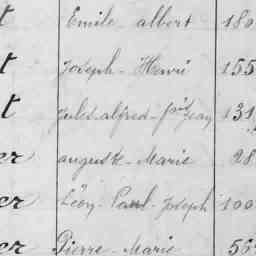 t Emile albert 180
t Joseph - Henri 155
t Jules - alfred - Jean 131
er auguste - Marie 28
er Léon - Paul - Joseph 100
er Pierre - Marie 56